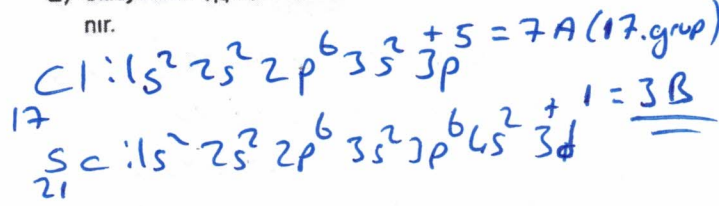 nır.
₁₇Cl: 1s² 2s² 2p⁶ 3s² + 3p⁵ = 7A (17.grup)
₂₁Sc: 1s² 2s² 2p⁶ 3s² 3p⁶ 4s² + 3d¹ = 3B